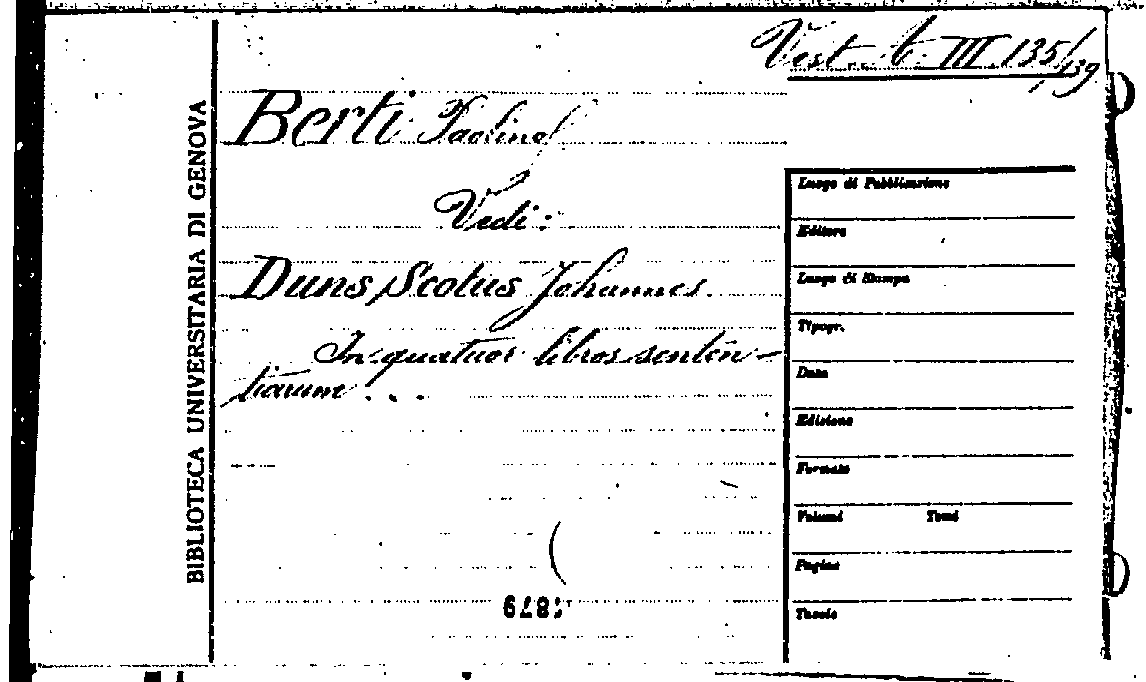 Vest. b. III 135/139
BIBLIOTECA UNIVERSITARIA DI GENOVA
Berti Paolino
Vedi:
Duns Scotus Johannes.
In quatuor libros senten-
tiarum . . .
Luogo di Pubblicazione
Editore
Luogo di Stampa
Tipogr.
Data
Edizione
Formato
Volumi Tomi
Pagine
Tavole